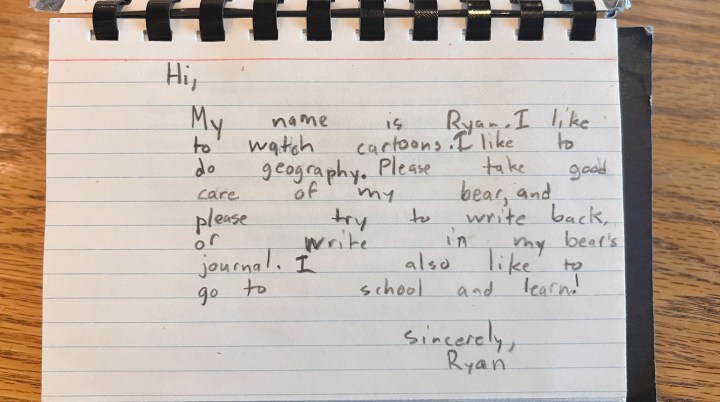 Hi,
My name is Ryan. I like
to watch cartoons. I like to
do geography. Please take good
care of my bear, and
please try to write back,
or write in my bear's
journal. I also like to
go to school and learn!
sincerely,
Ryan